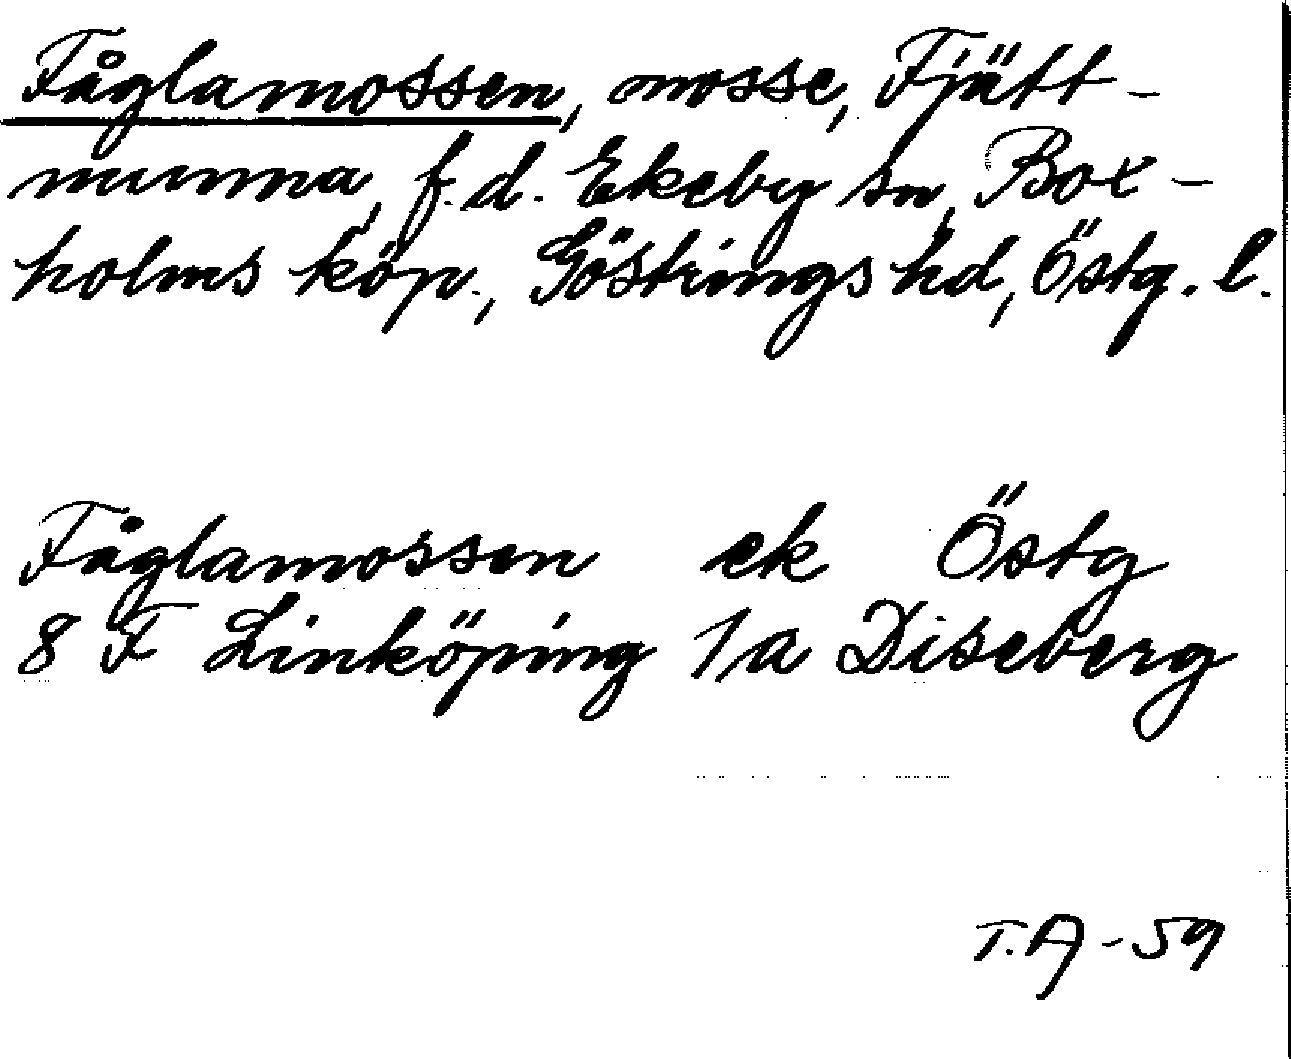 Fåglamossen, mosse, Fjätt-
munna, f.d. Ekeby sn, Box-
holms köp., Göstrings hd, Östg. l.
Fåglamossen ek Östg
8 F Linköping 1a Diseberg
T.A-59